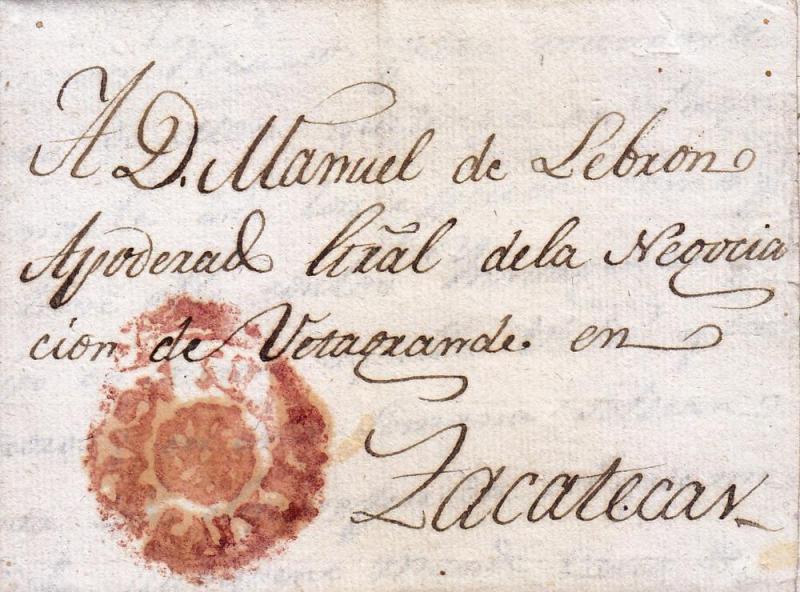 A D. Manuel de Lebron
Apoderado Gral dela Negocia
cion de Vetagrande. en
Zacatecas